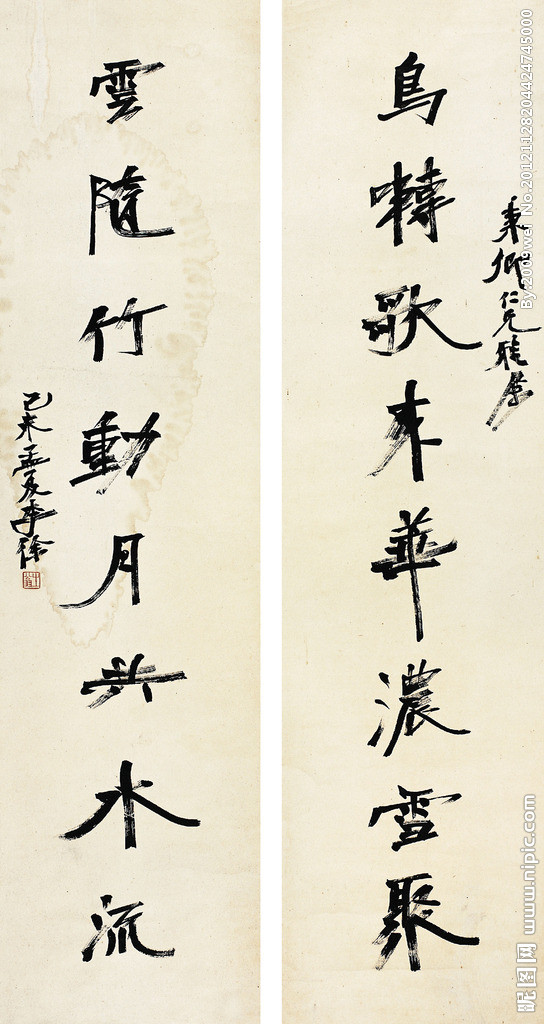 秉卿仁兄雅属
鳥囀歌来華濃雪聚
雲隨竹動月共水流
己未孟夏李徐
By:2009wei No.20121128204424745000
昵图网 www.nipic.com